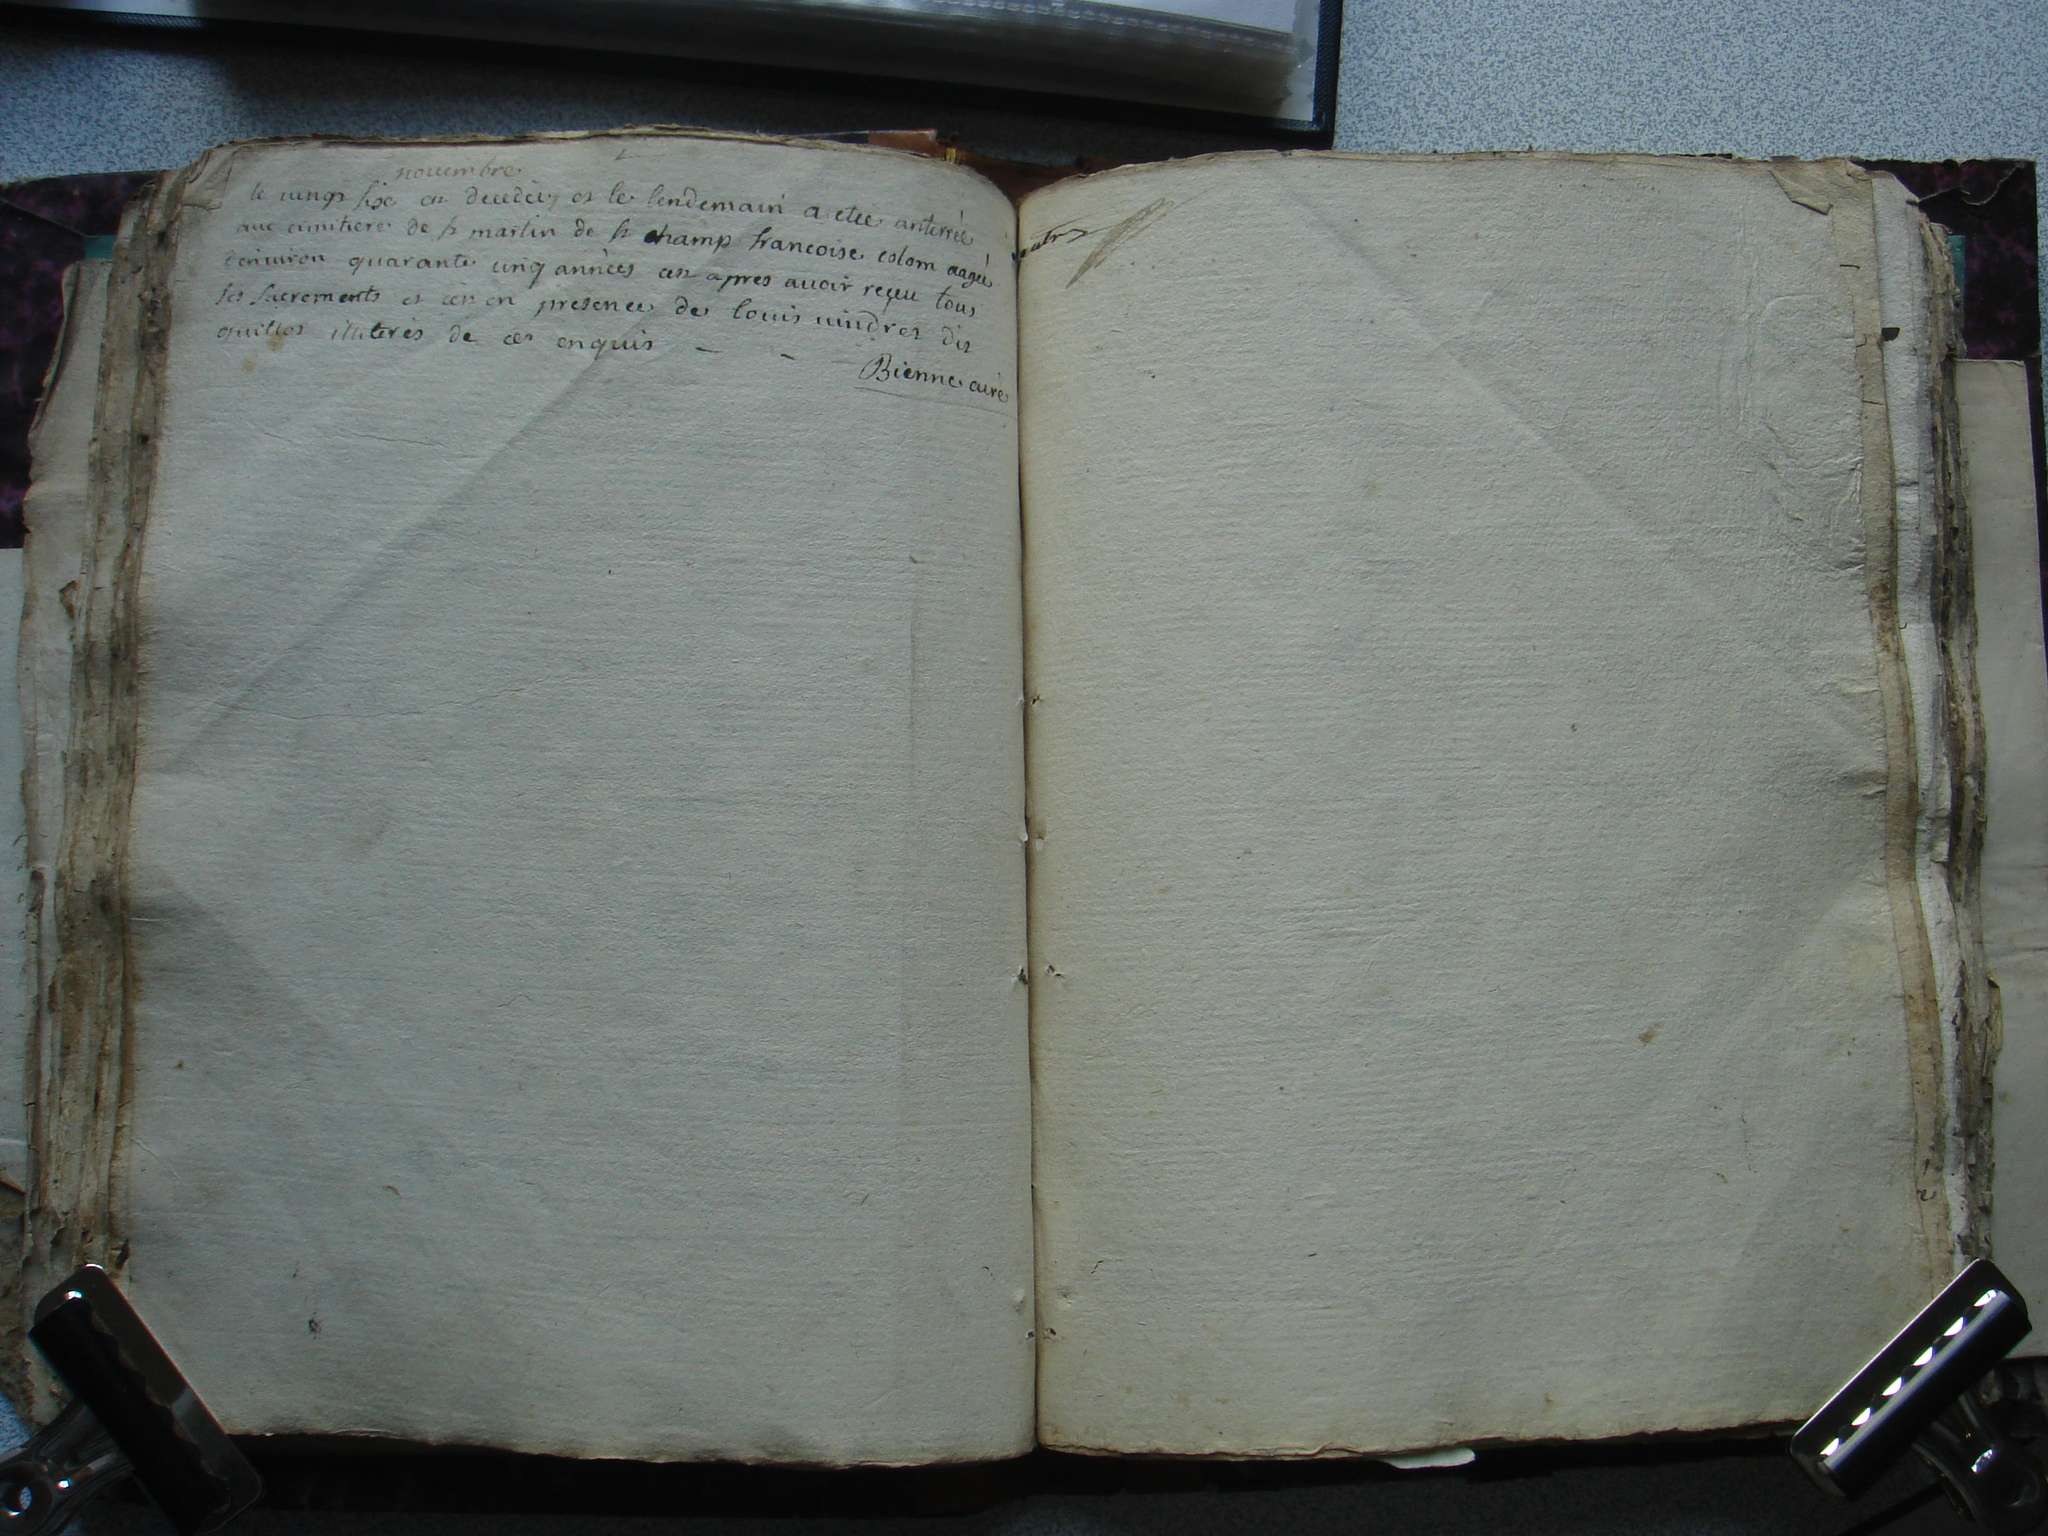 novembre
le vingt six est decedée, et le lendemain a etée anterrée
auc cimitiere de st martin de st champ francoise colom aagée
denviron quarante cinq années cet apres avoir reçeu tous
ses sacrements et cet en presence de louis vindret dit
quillot illiterés de cet enquis - -
Bienne curé